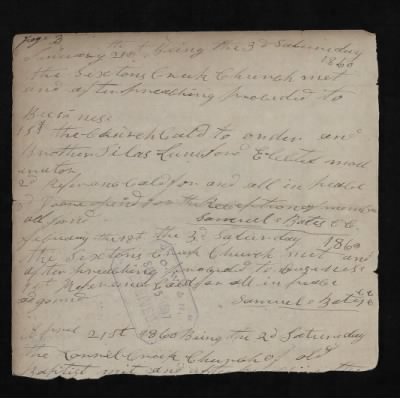 page 3
January 21st Being the 3d Saturday
1860
the Sextons Creek Church met
and after preaching proceded to
Buisiness
1st the Church Cald to order and
Brother Silas Lunsford Elected mod
erator
2d Referance Cald for and all in peace
3d Doore opend for the Reception of members
Samuel Bates C C
February the 18t the 3d Saturday 1860
the Sextons Creek Church met and
after preaching proceded to Buisness
1st Referance Cald for all in peace
Samuel Bates C C
April 21st 1860 Being the 2d Saturday
the Creek Church of old
Baptist met and after